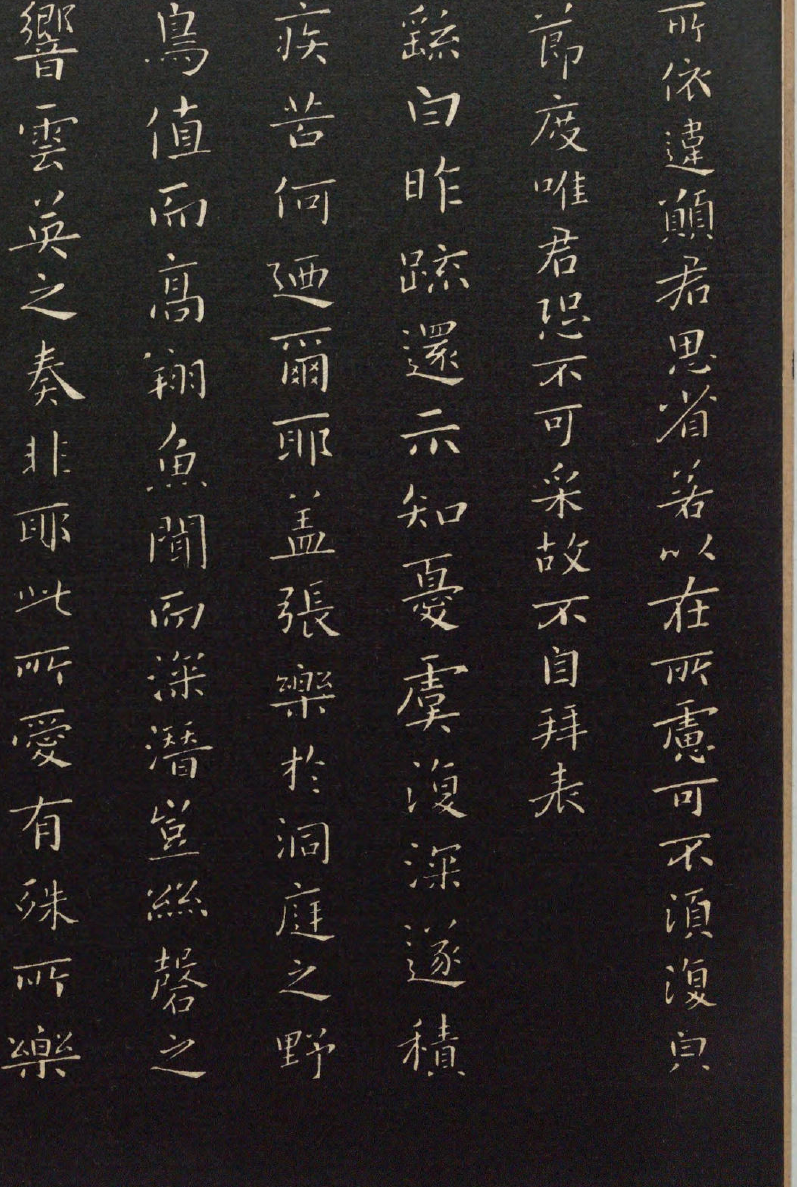 所依違願君思省若以在所慮可不須復白
節度唯君恐不可采故不自拜表
繇白昨疏還示知憂虞復深遂積
疾苦何廼爾耶盖張樂於洞庭之野
鳥值而高翔魚聞而深潛豈絲磬之
響雲英之奏非耶此所愛有殊所樂